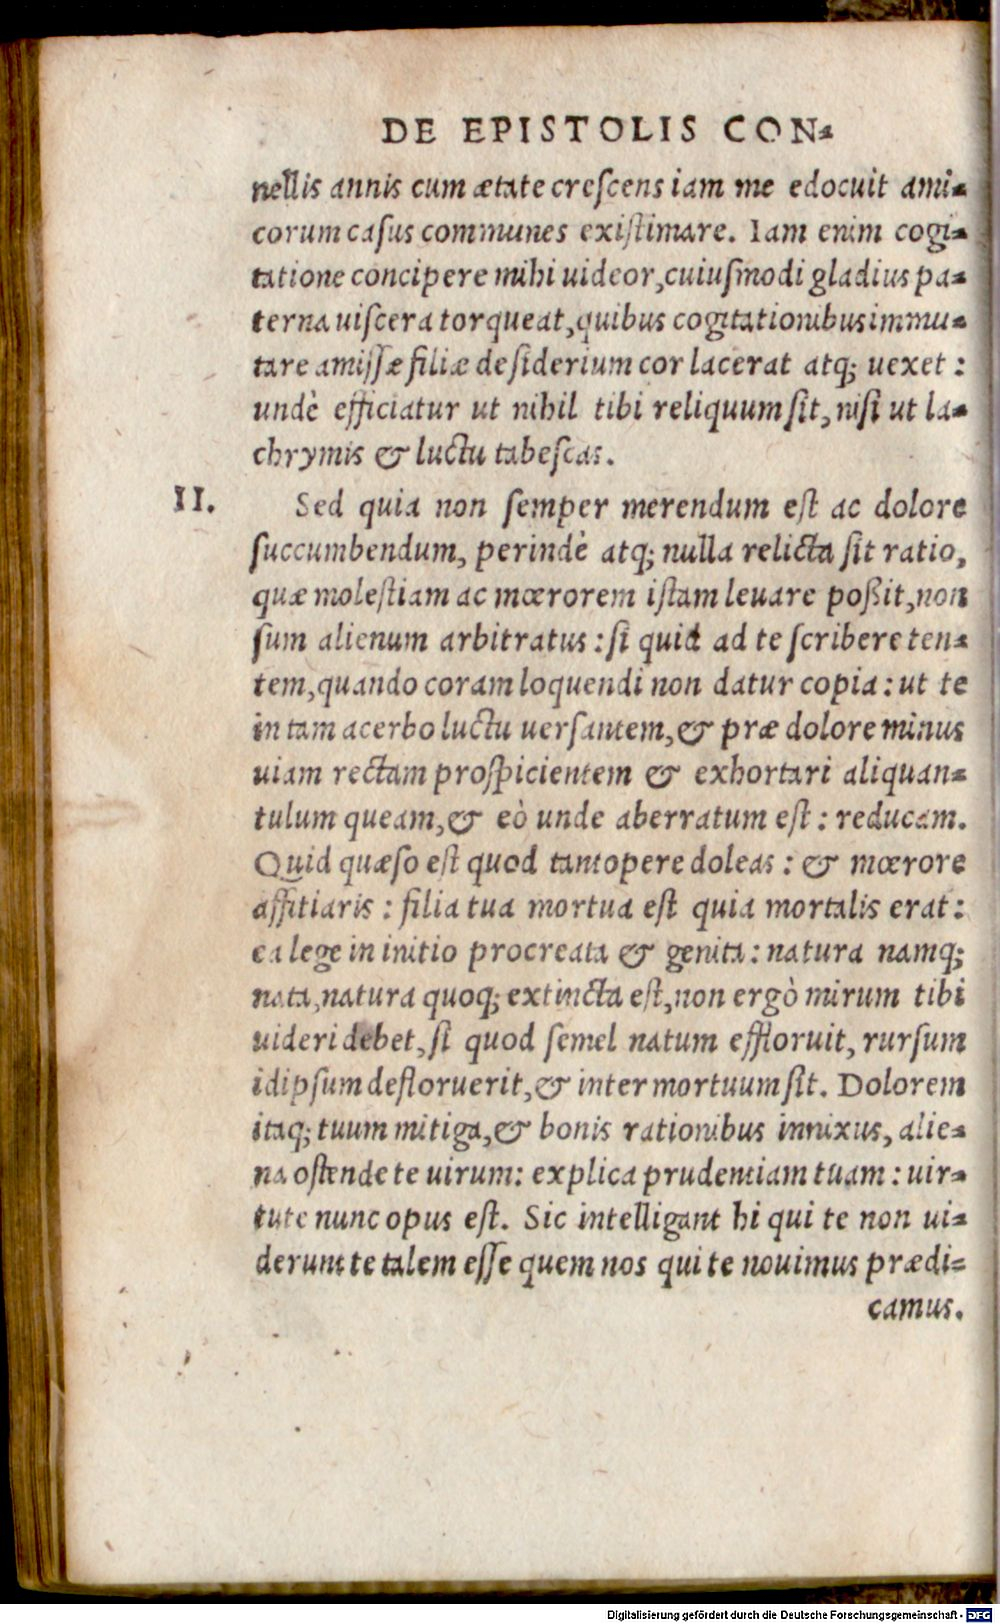 DE EPISTOLIS CON-
nellis annis cum ætate crescens iam me edocuit ami-
corum casus communes existimare. Iam enim cogi-
tatione concipere mihi uideor, cuiusmodi gladius pa-
terna uiscera torqueat, quibus cogitationibus immu-
tare amissæ filiæ desiderium cor lacerat atq; uexet :
undè efficiatur ut nihil tibi reliquum sit, nisi ut la-
chrymis & luctu tabescas.
II. Sed quia non semper merendum est ac dolore
succumbendum, perindè atq; nulla relicta sit ratio,
quæ molestiam ac mœrorem istam leuare poßit, non
sum alienum arbitratus : si quid ad te scribere ten-
tem, quando coram loquendi non datur copia : ut te
in tam acerbo luctu uersantem, & præ dolore minus
uiam rectam prospicientem & exhortari aliquan-
tulum queam, & eò unde aberratum est : reducam.
Quid quæso est quod tantopere doleas : & mœrore
affitiaris : filia tua mortua est quia mortalis erat :
ea lege in initio procreata & genita : natura namq;
nata, natura quoq; extincta est, non ergò mirum tibi
uideri debet, si quod semel natum effloruit, rursum
idipsum defloruerit, & inter mortuum sit. Dolorem
itaq; tuum mitiga, & bonis rationibus innixus, alie-
na ostende te uirum : explica prudentiam tuam : uir-
tute nunc opus est. Sic intelligant hi qui te non ui-
derunt te talem esse quem nos qui te nouimus prædi-
camus.
Digitalisierung gefördert durch die Deutsche Forschungsgemeinschaft - DFG